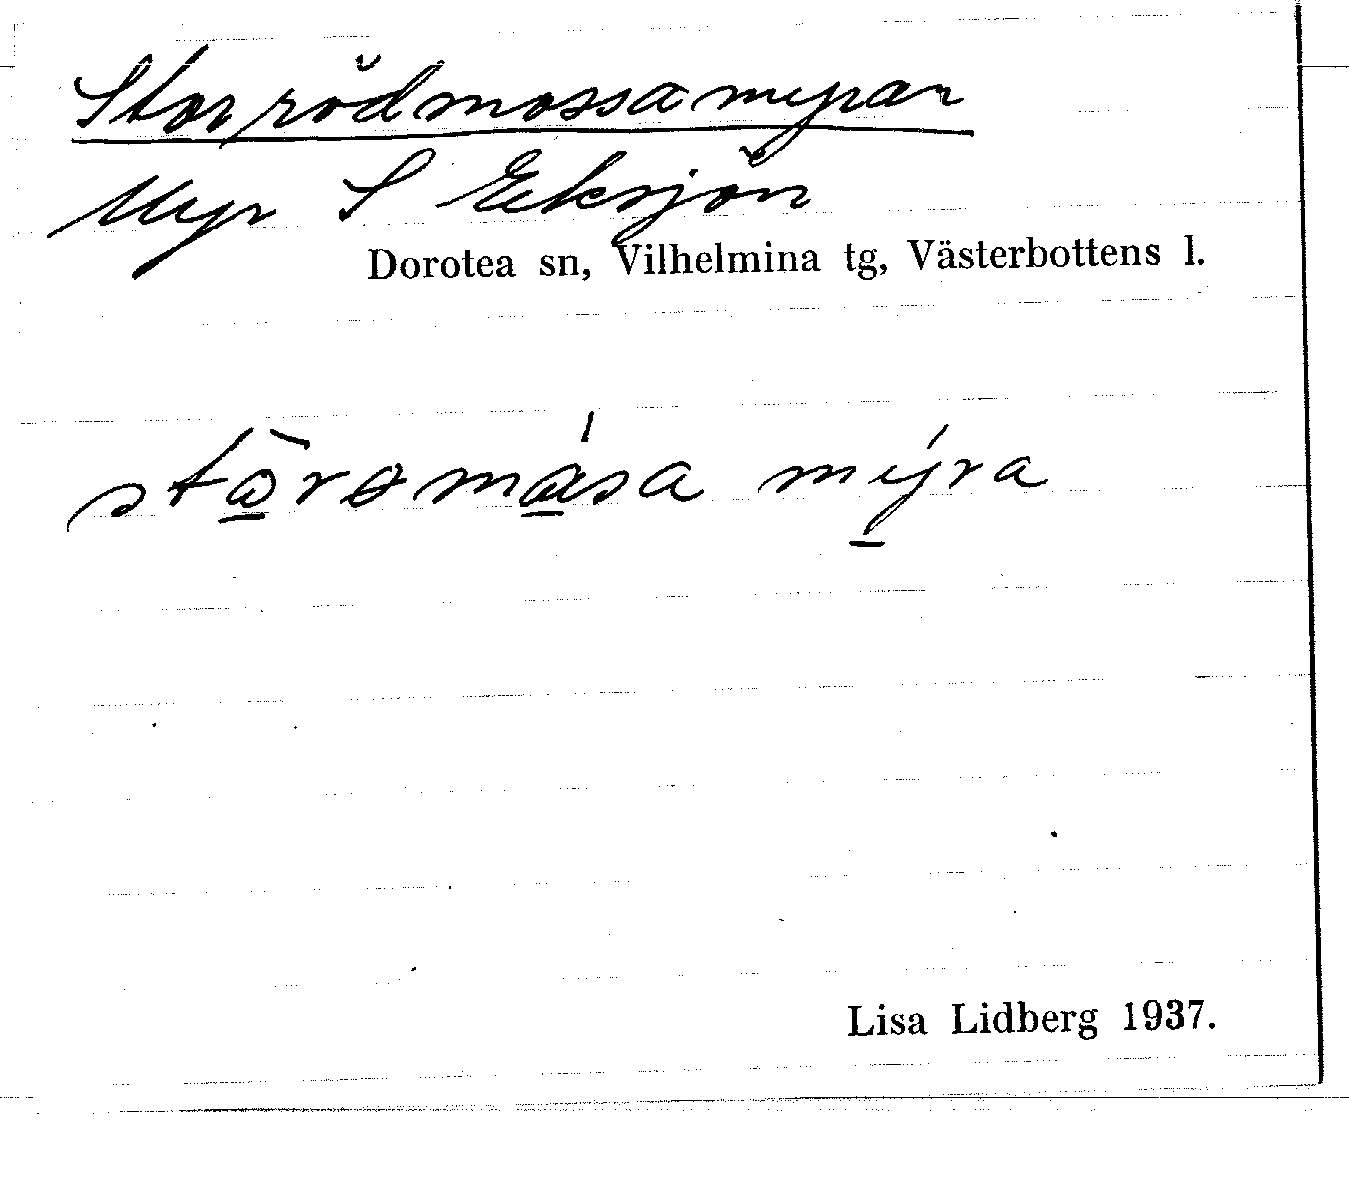 Storrödmossamyran
Myr S Eksjön
Dorotea sn, Vilhelmina tg, Västerbottens l.
stò̱rømá̱sa mý̱ra
Lisa Lidberg 1937.